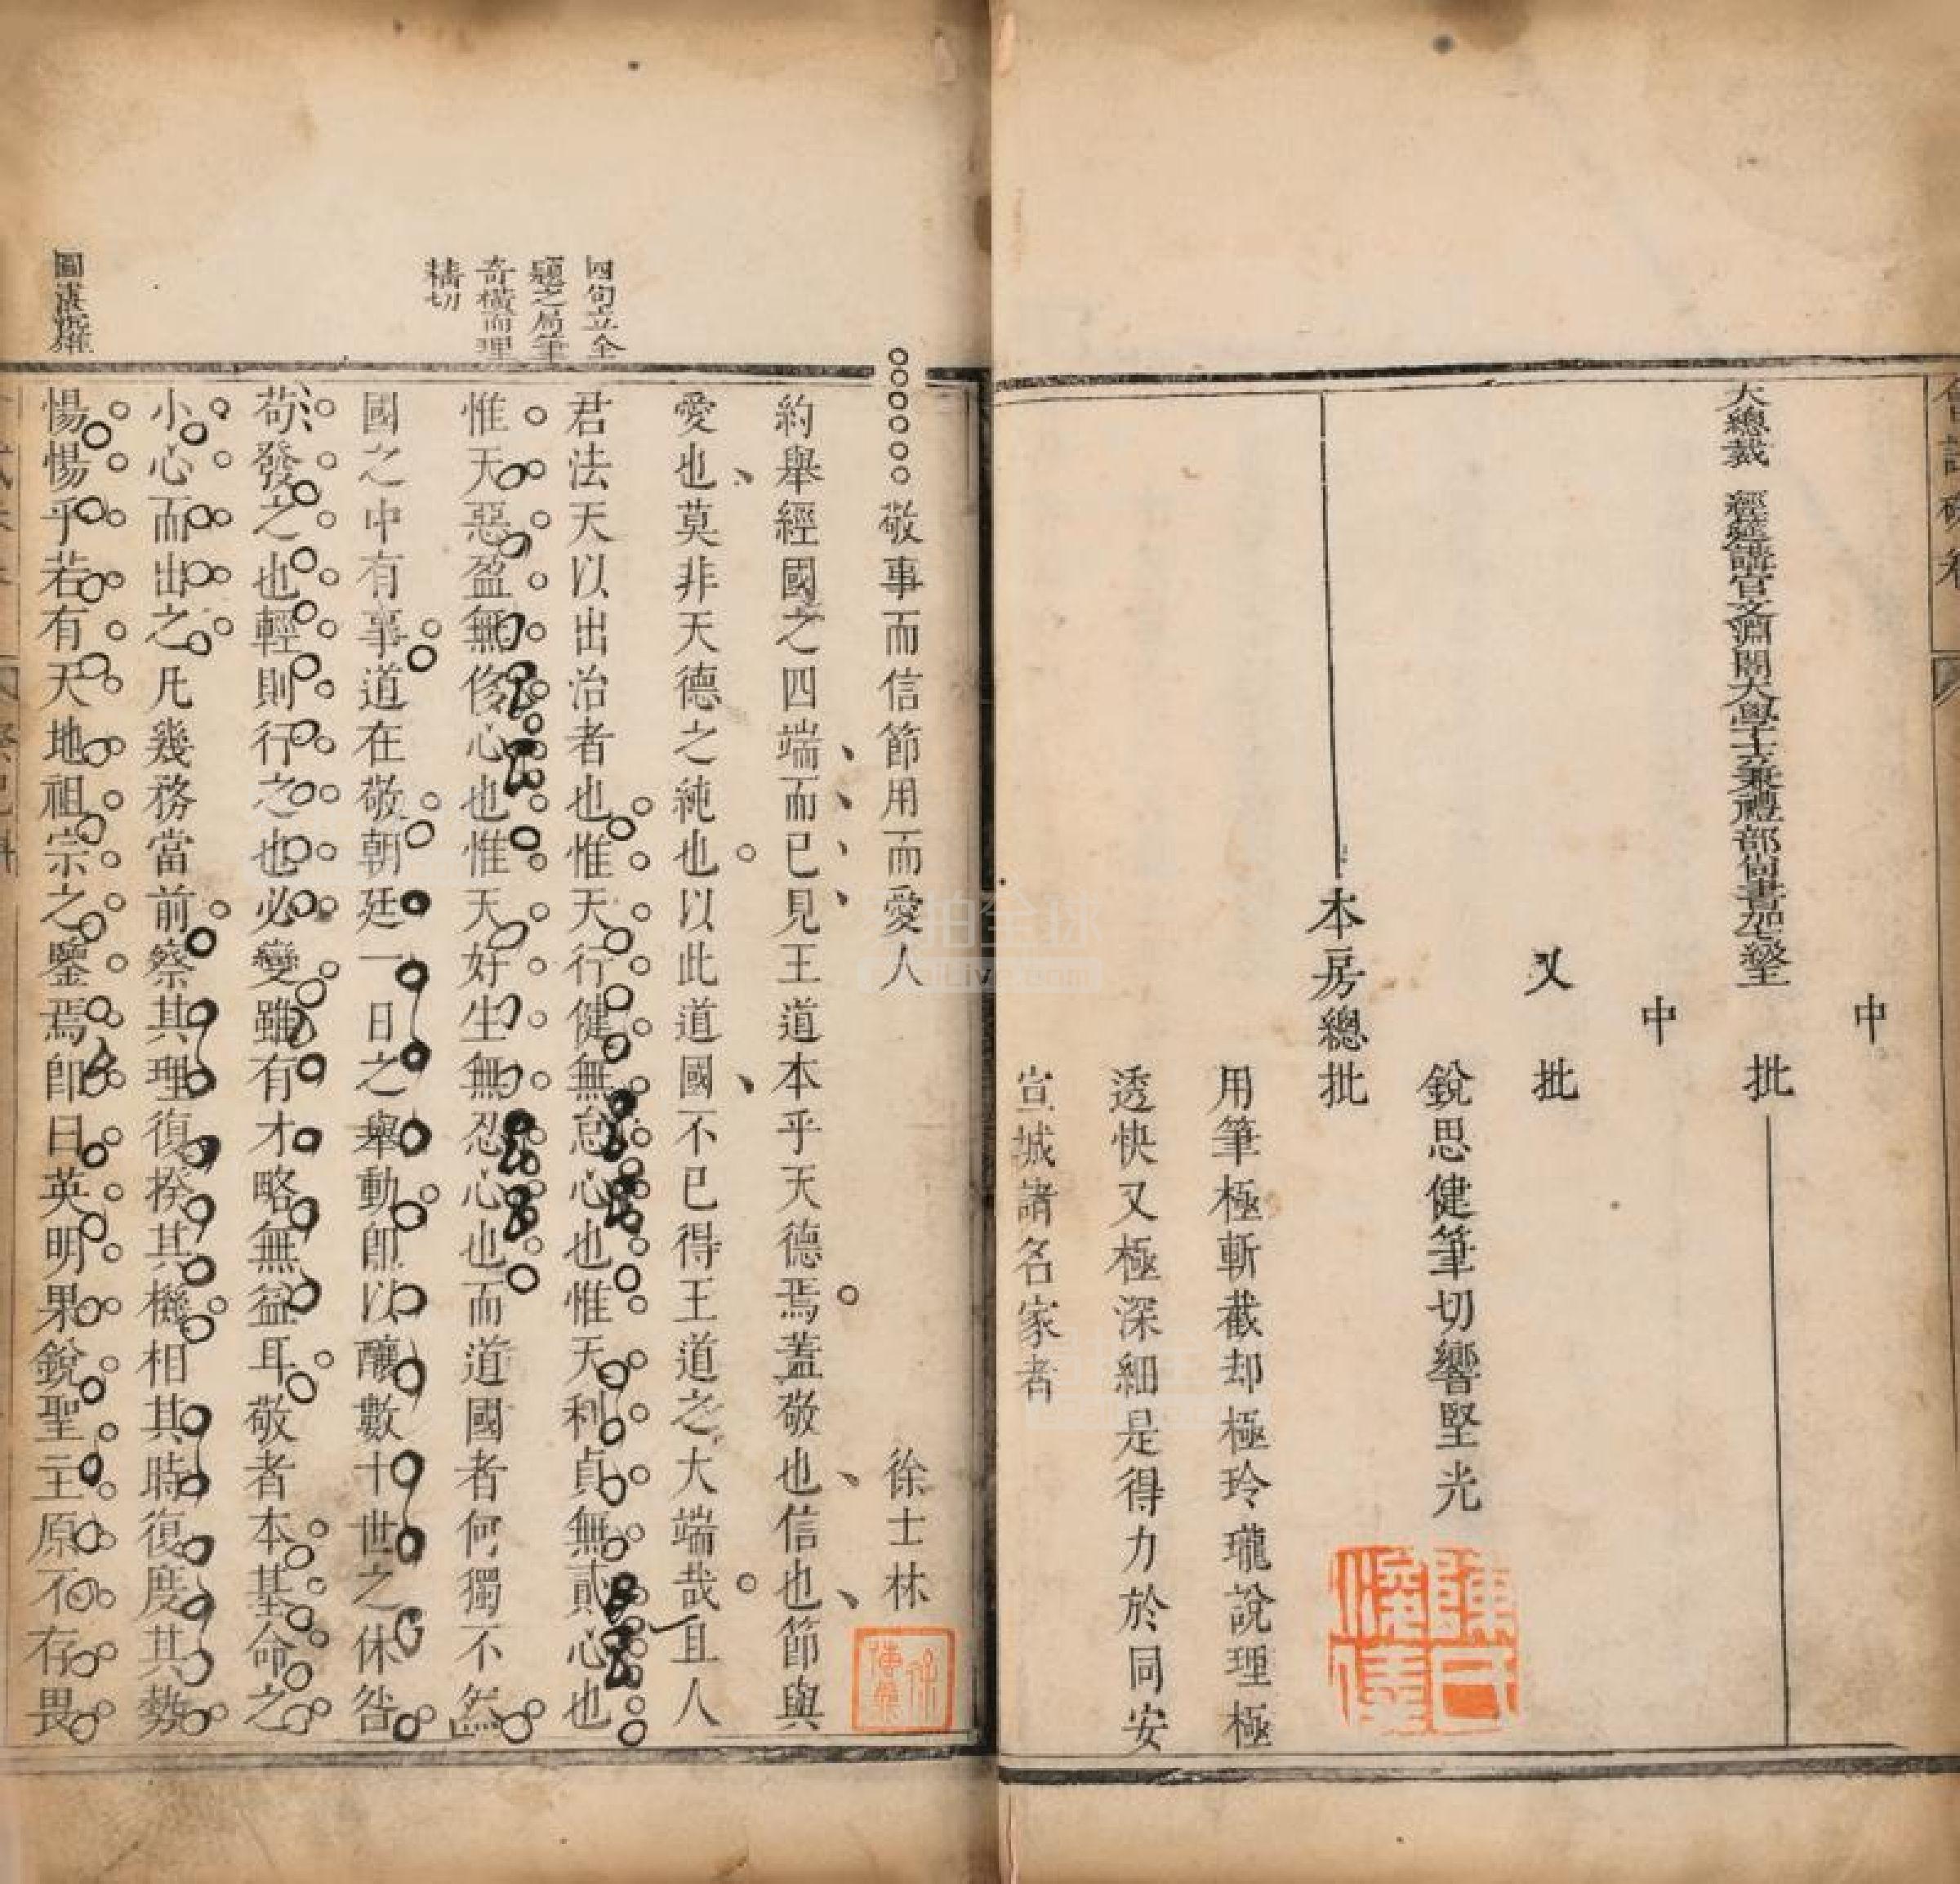 中
大總裁 經筵講官文淵閣大學士兼禮部尚書加三級王 批
中
又批
銳思健筆切響堅光
本房總批
用筆極斬截却極玲瓏說理極
透快又極深細是得力於同安
宣城諸名家者
敬事而信節用而愛人 徐士林
約舉經國之四端而已見王道本乎天德焉蓋敬也信也節與
愛也莫非天德之純也以此道國不已得王道之大端哉且人
君法天以出治者也惟天行健無怠心也惟天利貞無貳心也
惟天惡盈無侈心也惟天好生無忍心也而道國者何獨不然
國之中有事道在敬朝廷一日之舉動卽以釀數十世之休咎
苟發之也輕則行之也必變雖有才略無益耳敬者本基命之
小心而出之凡幾務當前察其理復揆其機相其時復度其勢
惕惕乎若有天地祖宗之鑒焉卽曰英明果銳聖主原不存畏
四句立全
題之局筆
奇橫而理
精切